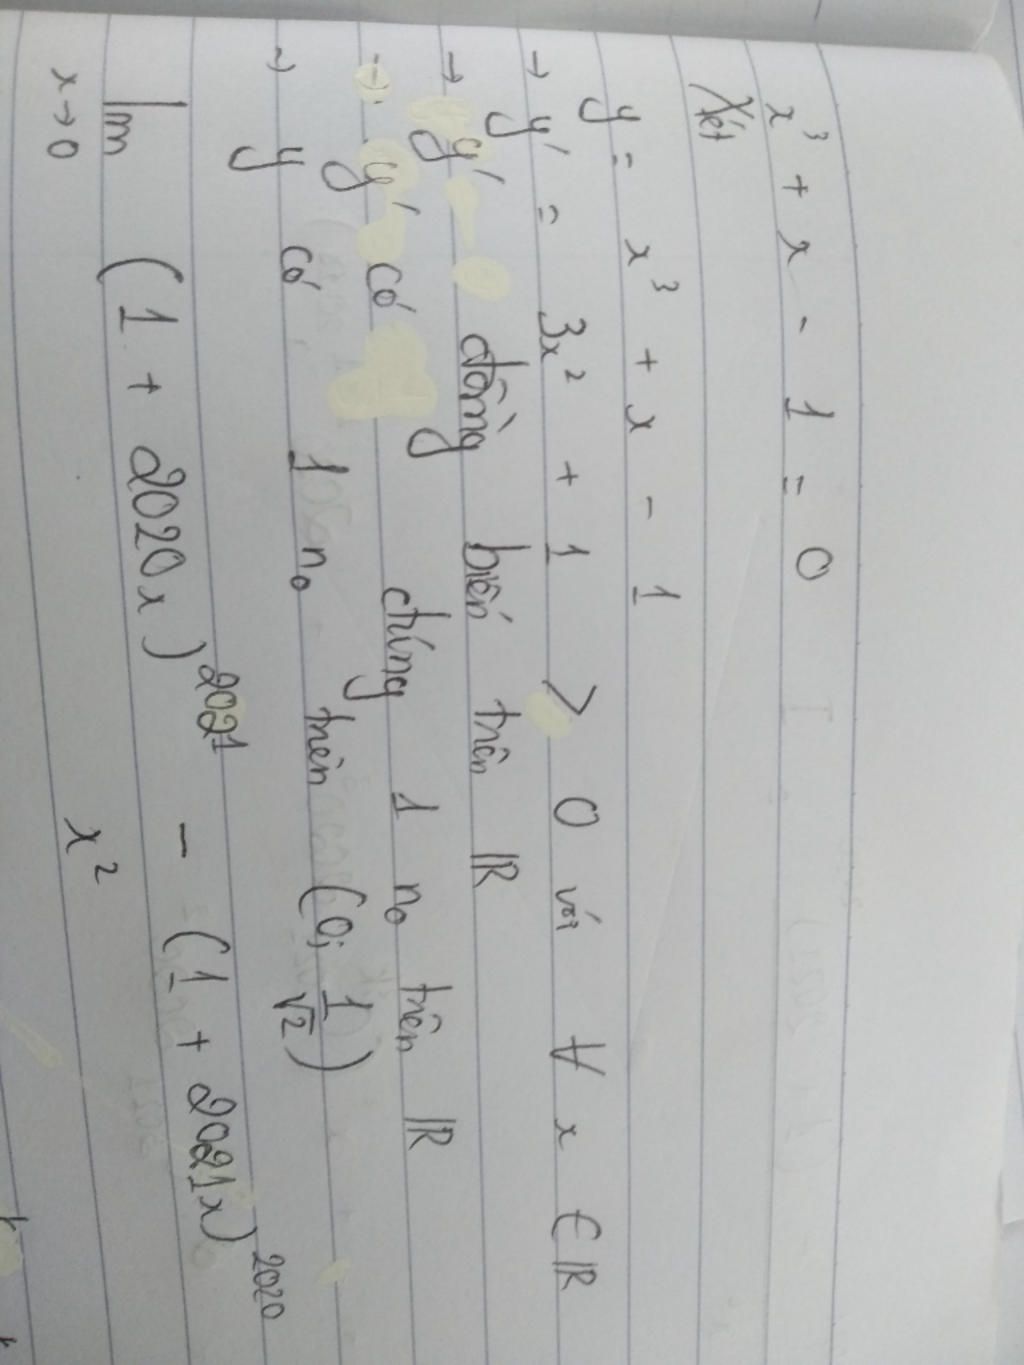 x³ + x - 1 = 0
Xét
y = x³ + x - 1
→ y' = 3x² + 1 > 0 với ∀ x ∈ ℝ
→ y' đồng biến trên ℝ
→ y' có chúng 1 n₀ trên ℝ
→ y có 1 n₀ trên (0; 1/√2)
lim x→0 (1 + 2020x)²⁰²¹ - (1 + 2021x)²⁰²⁰
x²